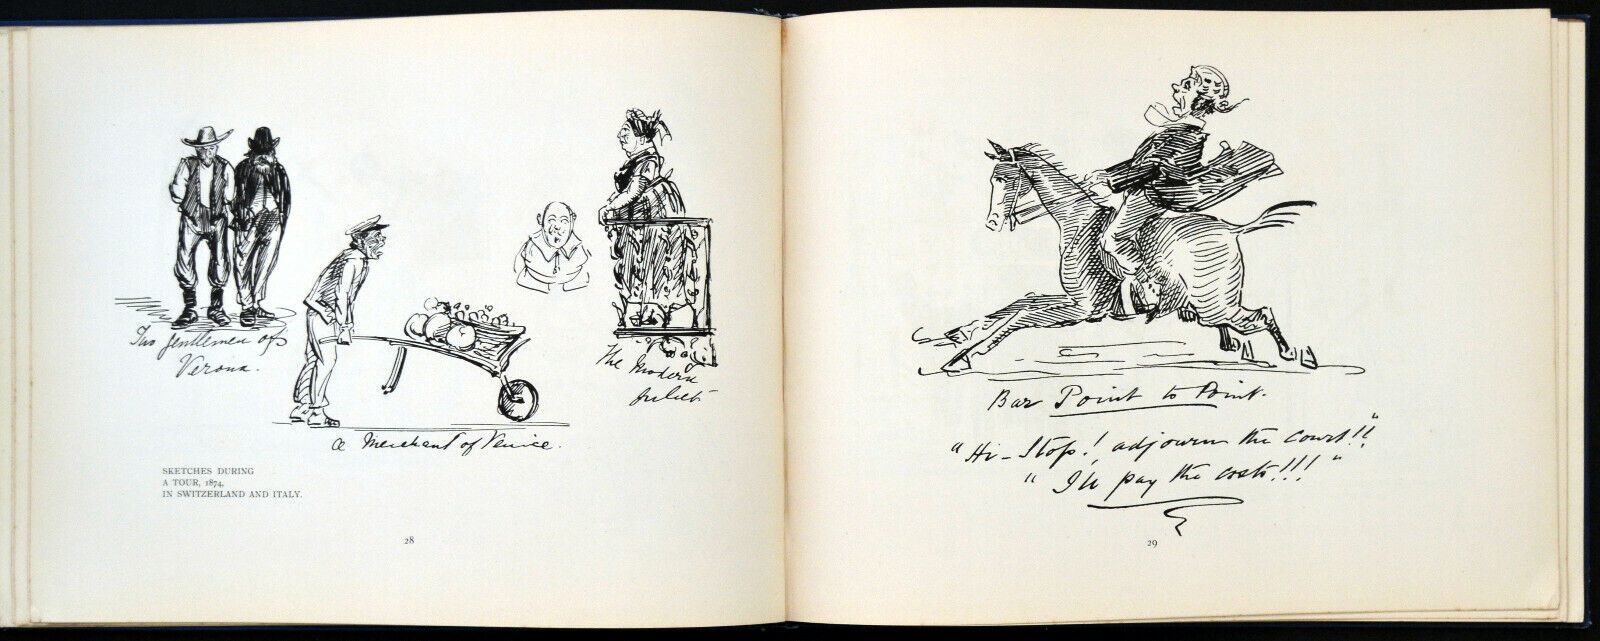 Two gentlemen of
Verona.
a Merchant of Venice.
The Modern
Juliet
SKETCHES DURING
A TOUR, 1874,
IN SWITZERLAND AND ITALY.
28
Bar Point to Point.
"Hi - Stop! adjourn the Court!!"
"I'll pay the costs!!!"
29